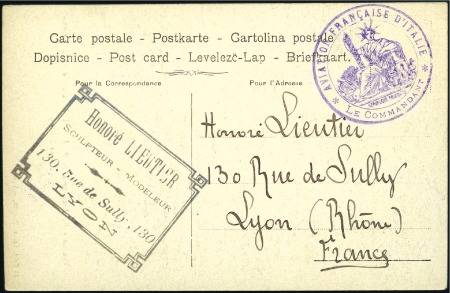 Carte postale - Postkarte - Cartolina postale
Dopisnice - Post card - Levelezó-Lap - Briefkaart.
Pour la Correspondance
Pour l'Adresse
AVIATION FRANÇAISE D'ITALIE
* LE COMMANDANT *
Honoré LIEUTIER
SCULPTEUR - MODELEUR
130, Rue de Sully, 130
LYON
Honoré Lieutier
130 Rue de Sully
Lyon (Rhône)
France